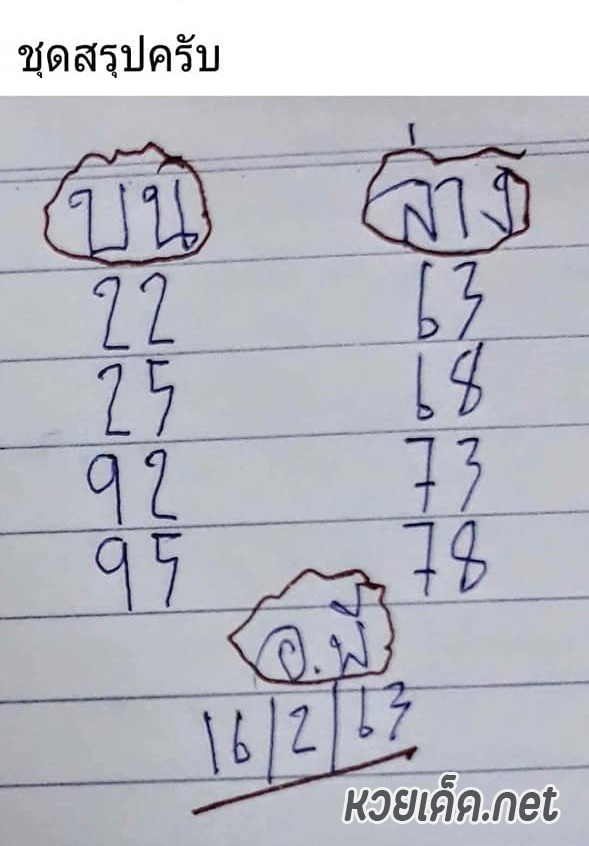 ชุดสรุปครับ
บน ล่าง
22 63
25 68
92 73
95 78
อ.พี่
16/2/63
หวยเด็ด.net